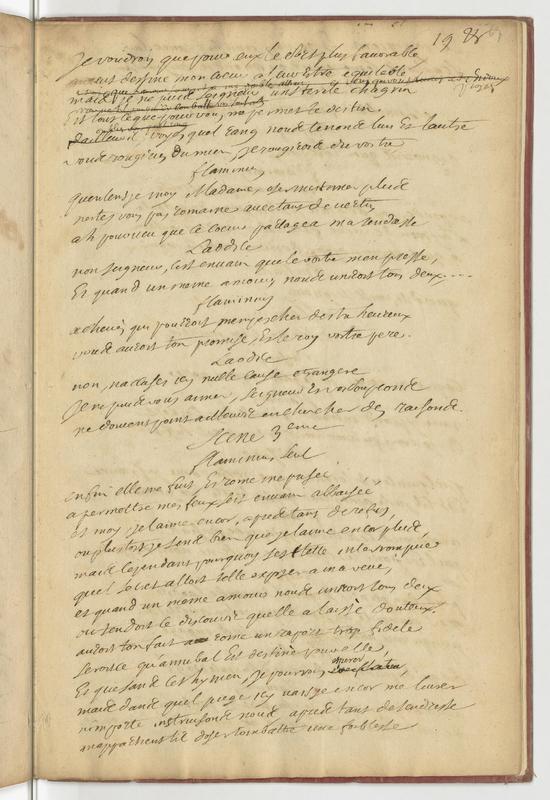 19
Je voudrois que pour eux le sort plus favorable
eut destiné mon coeur a leur estre equitable
mais je ne puis seigneur
Est tout ce que pour vous me permet le destin.
d'ailleurs voyez quel rang nous tenons l'un Est l'autre
vous rougiriez du mien, je rougirois du vostre
flaminius
qu'entens je moy Madame
n'estes vous pas romaine avec tant de vertu
ah pourveu que ce coeur partagea ma tendresse
Laodice
non seigneur, c'est envain que le vostre m'en presse,
Et quand un mesme amour nous uniroit tous deux....
flaminius
achevez, qui pourroit m'empescher destre heureux
vous auroit t'on promise, Est le roy vostre pere.
Laodice
non, n'accusez icy nulle cause etrangere
Je ne puis vous aimer, seigneur Et vos soupçons
ne doivent point ailleurs en chercher des raisons.
Scene 3eme
flaminius seul
enfin elle me fuit Et rome meprisée
a permettre mes feux s'est envain abaissée
et moy je l'aime encor, apres tant de refus,
ou plustost je sens bien que je l'aime encor plus,
mais cependant pourquoy s'est elle interrompue
quel secret alloit elle exposer a ma veue,
et quand un mesme amour nous uniroit tous deux
ou tendoit ce discours qu'elle a laissé douteux.
auroit t'on fait a rome un raport trop fidele
seroit ce qu'annibal Est destiné pour elle,
Et que sans cet hymen, je pourrois
mais dans quel piege icy vais je encor me livrer
n'importe instruisons nous, apres tant de tendresse
m'appartient il d'oser combattre une foiblesse